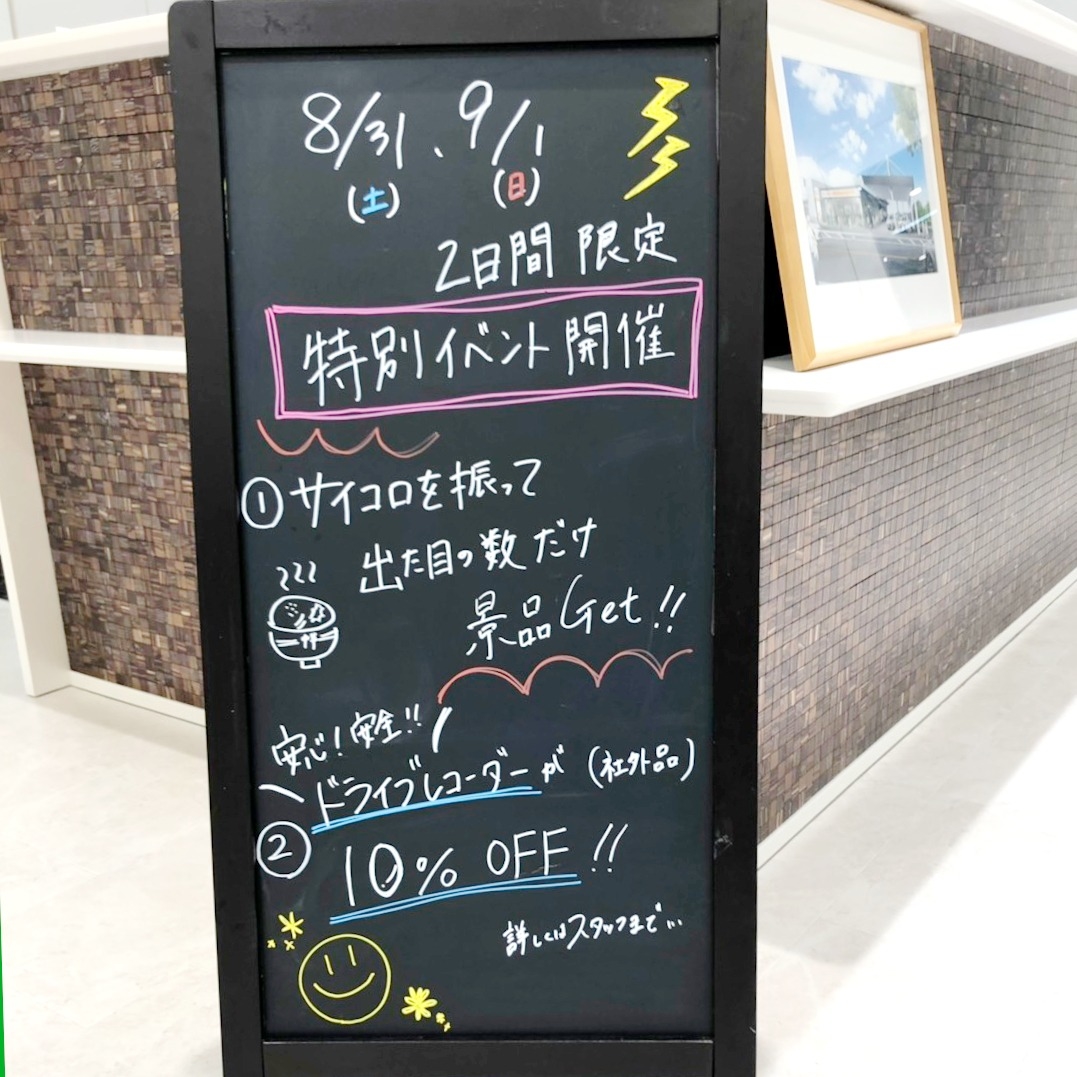 8/31、9/1
(土) (日)
2日間 限定
特別イベント開催
①サイコロを振って
出た目の数だけ
景品Get!!
安心!安全!!
ドライブレコーダーが(社外品)
②
10% OFF!!
詳しくはスタッフまで…